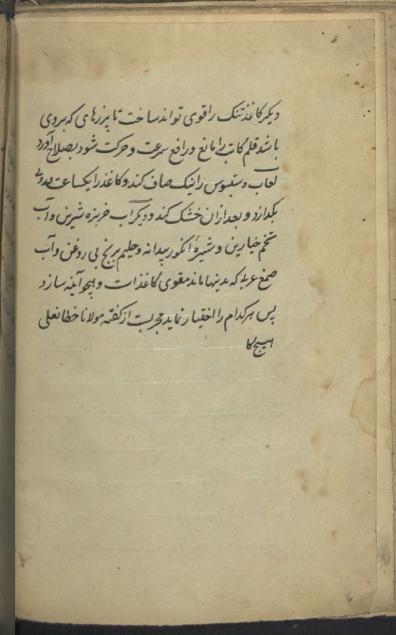 دیگر کاغذ تنک را قوی تواند ساخت تا پرزهای که بروی
باشد قلم کاتب را مانع و رافع سرعت و حرکت شود بصلاح آورد
لعاب دستنبوس را نیک صاف کند و کاغذ را یکساعت درو
بگذارد و بعد از ان خشک کند و دیگر آب خربزه شیرین و آب
تخم خیارین و شیرهٔ انگور بیدانه و حلیم برنج بی روغن و آب
صمغ عربی که بدینها ماند مقوی کاغذ است و همچو آینه سازد
پس هر کدام را اختیار نماید مجربست از کفته مولانا خطا نعلی